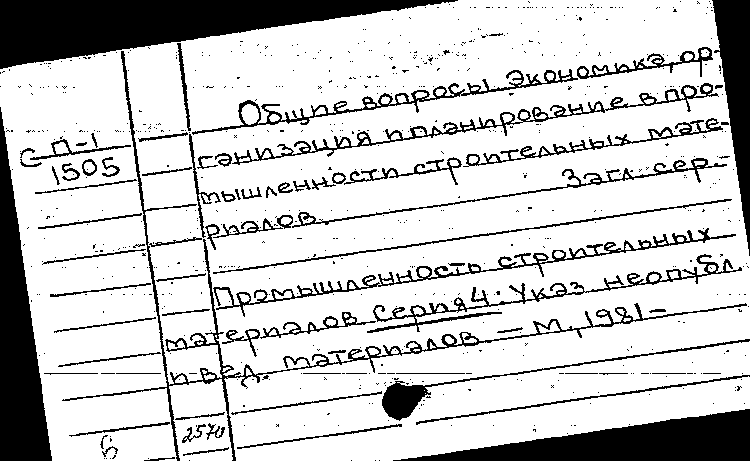 Общие вопросы. Экономика, ор-
ганизация и планирование в про-
мышленности строительных мате-
риалов. Загл. сер.-
С П-1
1505
Промышленность строительных
материалов. Серия 4: Указ. неопубл.
и вед. материалов. — М., 1981-
6 2570